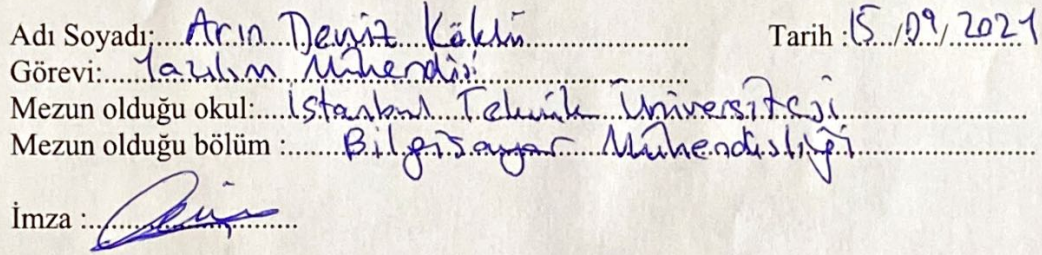 Adı Soyadı: Arın Deniz Köklü Tarih : 15/09/2021
Görevi: Yazılım Mühendisi
Mezun olduğu okul: İstanbul Teknik Üniversitesi
Mezun olduğu bölüm : Bilgisayar Mühendisliği
İmza :